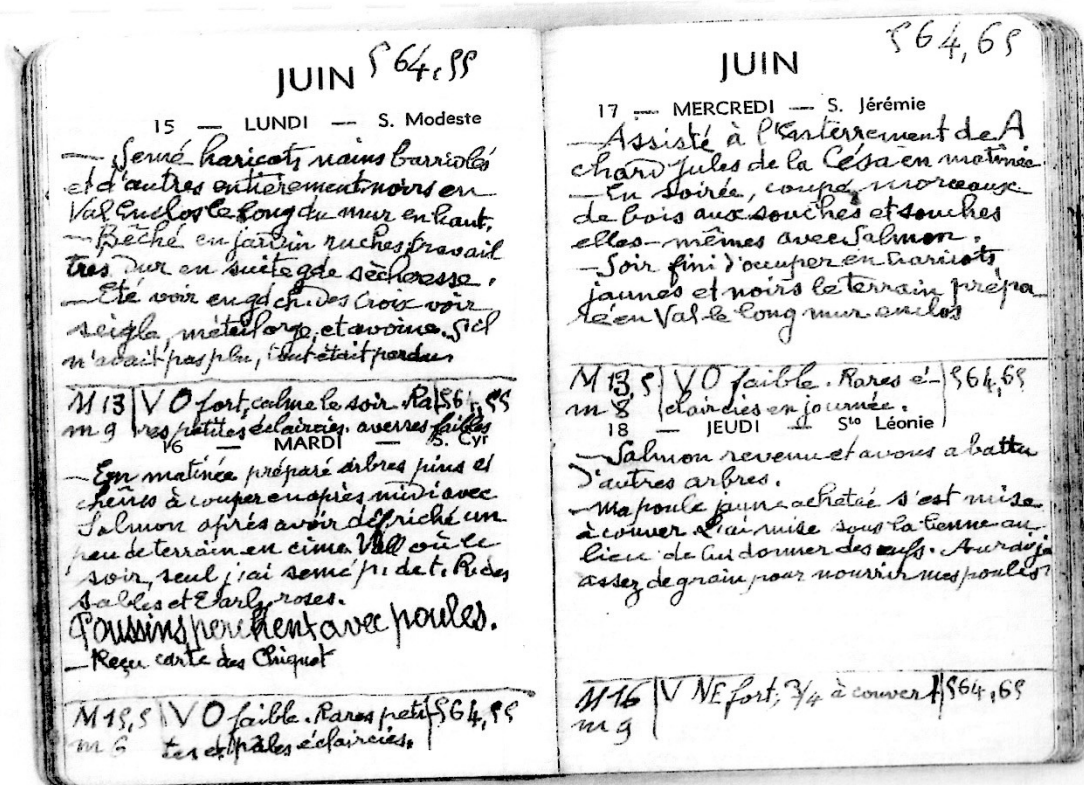 JUIN 564,55
15 — LUNDI — S. Modeste
— Semé haricots nains barriolés
et d'autres entièrement noirs en
Val Enclos le long du mur en haut.
— Bêché en jardin ruches, travail
très dur en suite gde sècheresse.
— Eté voir en gd ch. des Croix voir
seigle, méteil, orge, et avoine. S'il
n'avait pas plu, tout était perdu
M 13 V O fort, calme le soir. Ra 564,55
m 9 res petites éclaircies. averses faibles
16 — MARDI — S. Cyr
— En matinée préparé arbres pins et
chênes à couper en après midi avec
Salmon après avoir défriché un
peu de terrain en cime Vall où le
soir, seul j'ai semé p. de t. Rides
sables et Early roses.
Poussins perchent avec poules.
— Reçu carte des Chiquot
M 15,5 V O faible. Rares peti 564,55
m 6 tes et pâles éclaircies.
JUIN 564,65
17 — MERCREDI — S. Jérémie
— Assisté à l'enterrement de A
chard Jules de la Césa en matinée
— En soirée, coupé morceaux
de bois aux souches et souches
elles-mêmes avec Salmon.
— Soir fini d'occuper en haricots
jaunes et noirs le terrain prépa
ré en Val le long mur enclos
M 13,5 V O faible. Rares é- 564,65
m 8 claircies en journée.
18 — JEUDI — Ste Léonie
— Salmon revenu et avons abattu
d'autres arbres.
— Ma poule jaune achetée s'est mise
à couver. L'ai mise sous la tienne au
lieu de lui donner des œufs. Aurai-je
assez de grain pour nourrir mes poules?
M 16 V NE fort; 3/4 à couvert 564,65
m 9